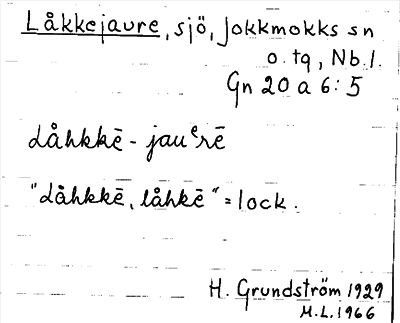 Låkkejaure, sjö, Jokkmokks sn
o. tg, Nb.l.
Gn 20 a 6:5
Låhkkē - jauᵉrē
"Låhkkē, låhkē" = lock.
H. Grundström 1929
M.L. 1966